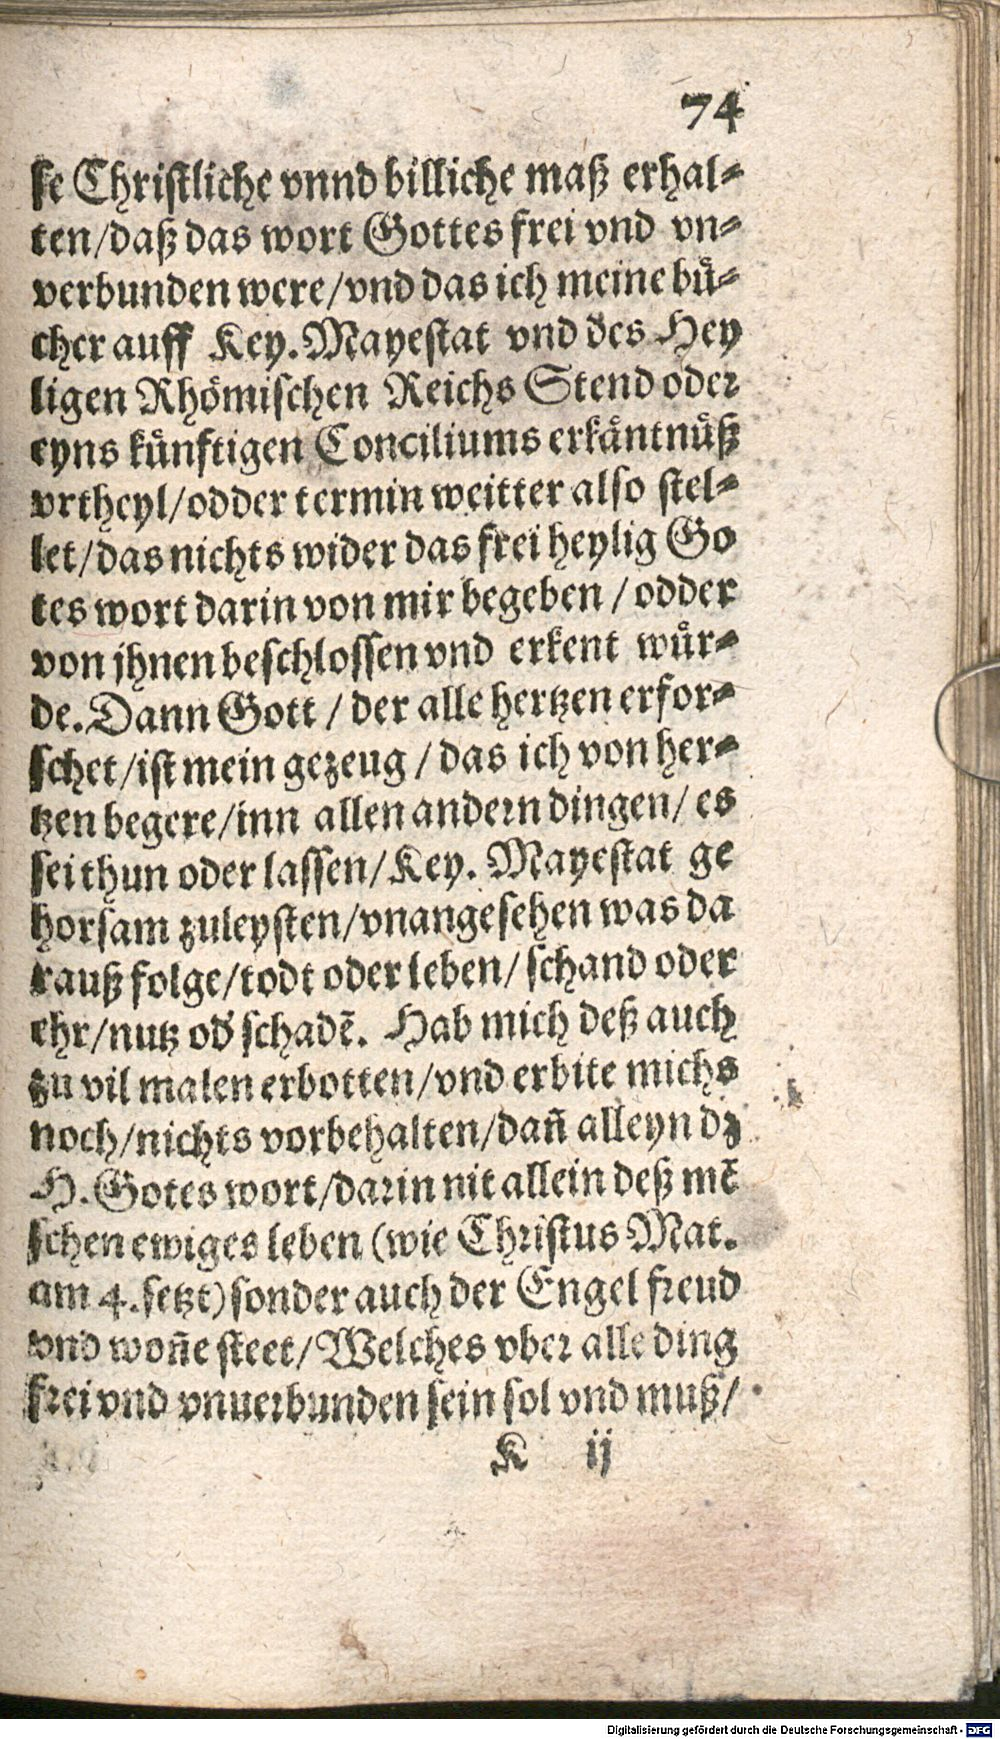 74
ſe Chriſtliche vnnd billiche maß erhal⸗
ten/daß das wort Gottes frei vnd vn⸗
verbunden were/vnd das ich meine buͤ⸗
cher auff Key. Mayeſtat vnd des Hey
ligen Rhoͤmiſchen Reichs Stend oder
eyns kuͤnftigen Conciliums erkaͤntnuͤß
vrtheyl/odder termin weitter alſo ſtel⸗
let/das nichts wider das frei heylig Go
tes wort darin von mir begeben / odder
von jhnen beſchloſſen vnd erkent wuͤr⸗
de. Dann Gott / der alle hertzen erfor⸗
ſchet/iſt mein gezeug / das ich von her⸗
tzen begere/inn allen andern dingen/ es
ſei thun oder laſſen/Key. Mayeſtat ge
horſam zuleyſten/vnangeſehen was da
rauß folge/todt oder leben/ ſchand oder
ehr/nutz od' ſchadẽ. Hab mich deß auch
zu vil malen erbotten/vnd erbite michs
noch/nichts vorbehalten/dañ alleyn dz
H. Gotes wort/darin nit allein deß mẽ
ſchen ewiges leben (wie Chriſtus Mat.
am 4. ſetzt) ſonder auch der Engel freud
vnd woñe ſteet/Welches vber alle ding
frei vnd vnuerbunden ſein ſol vnd muß/
K ij
Digitalisierung gefördert durch die Deutsche Forschungsgemeinschaft - DFG